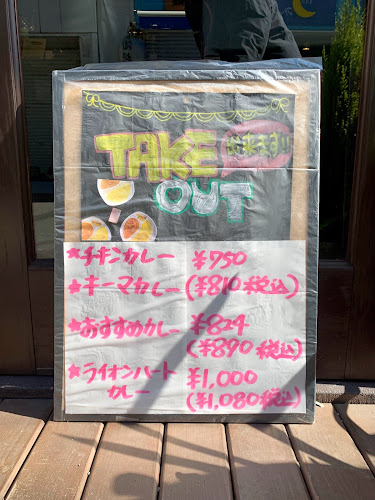 TAKE 出来ます!!
OUT
★チキンカレー ¥750
★キーマカレー (¥810 税込)
★おすすめカレー ¥824
(¥890 税込)
★ライオンハート ¥1,000
カレー (¥1,080税込)